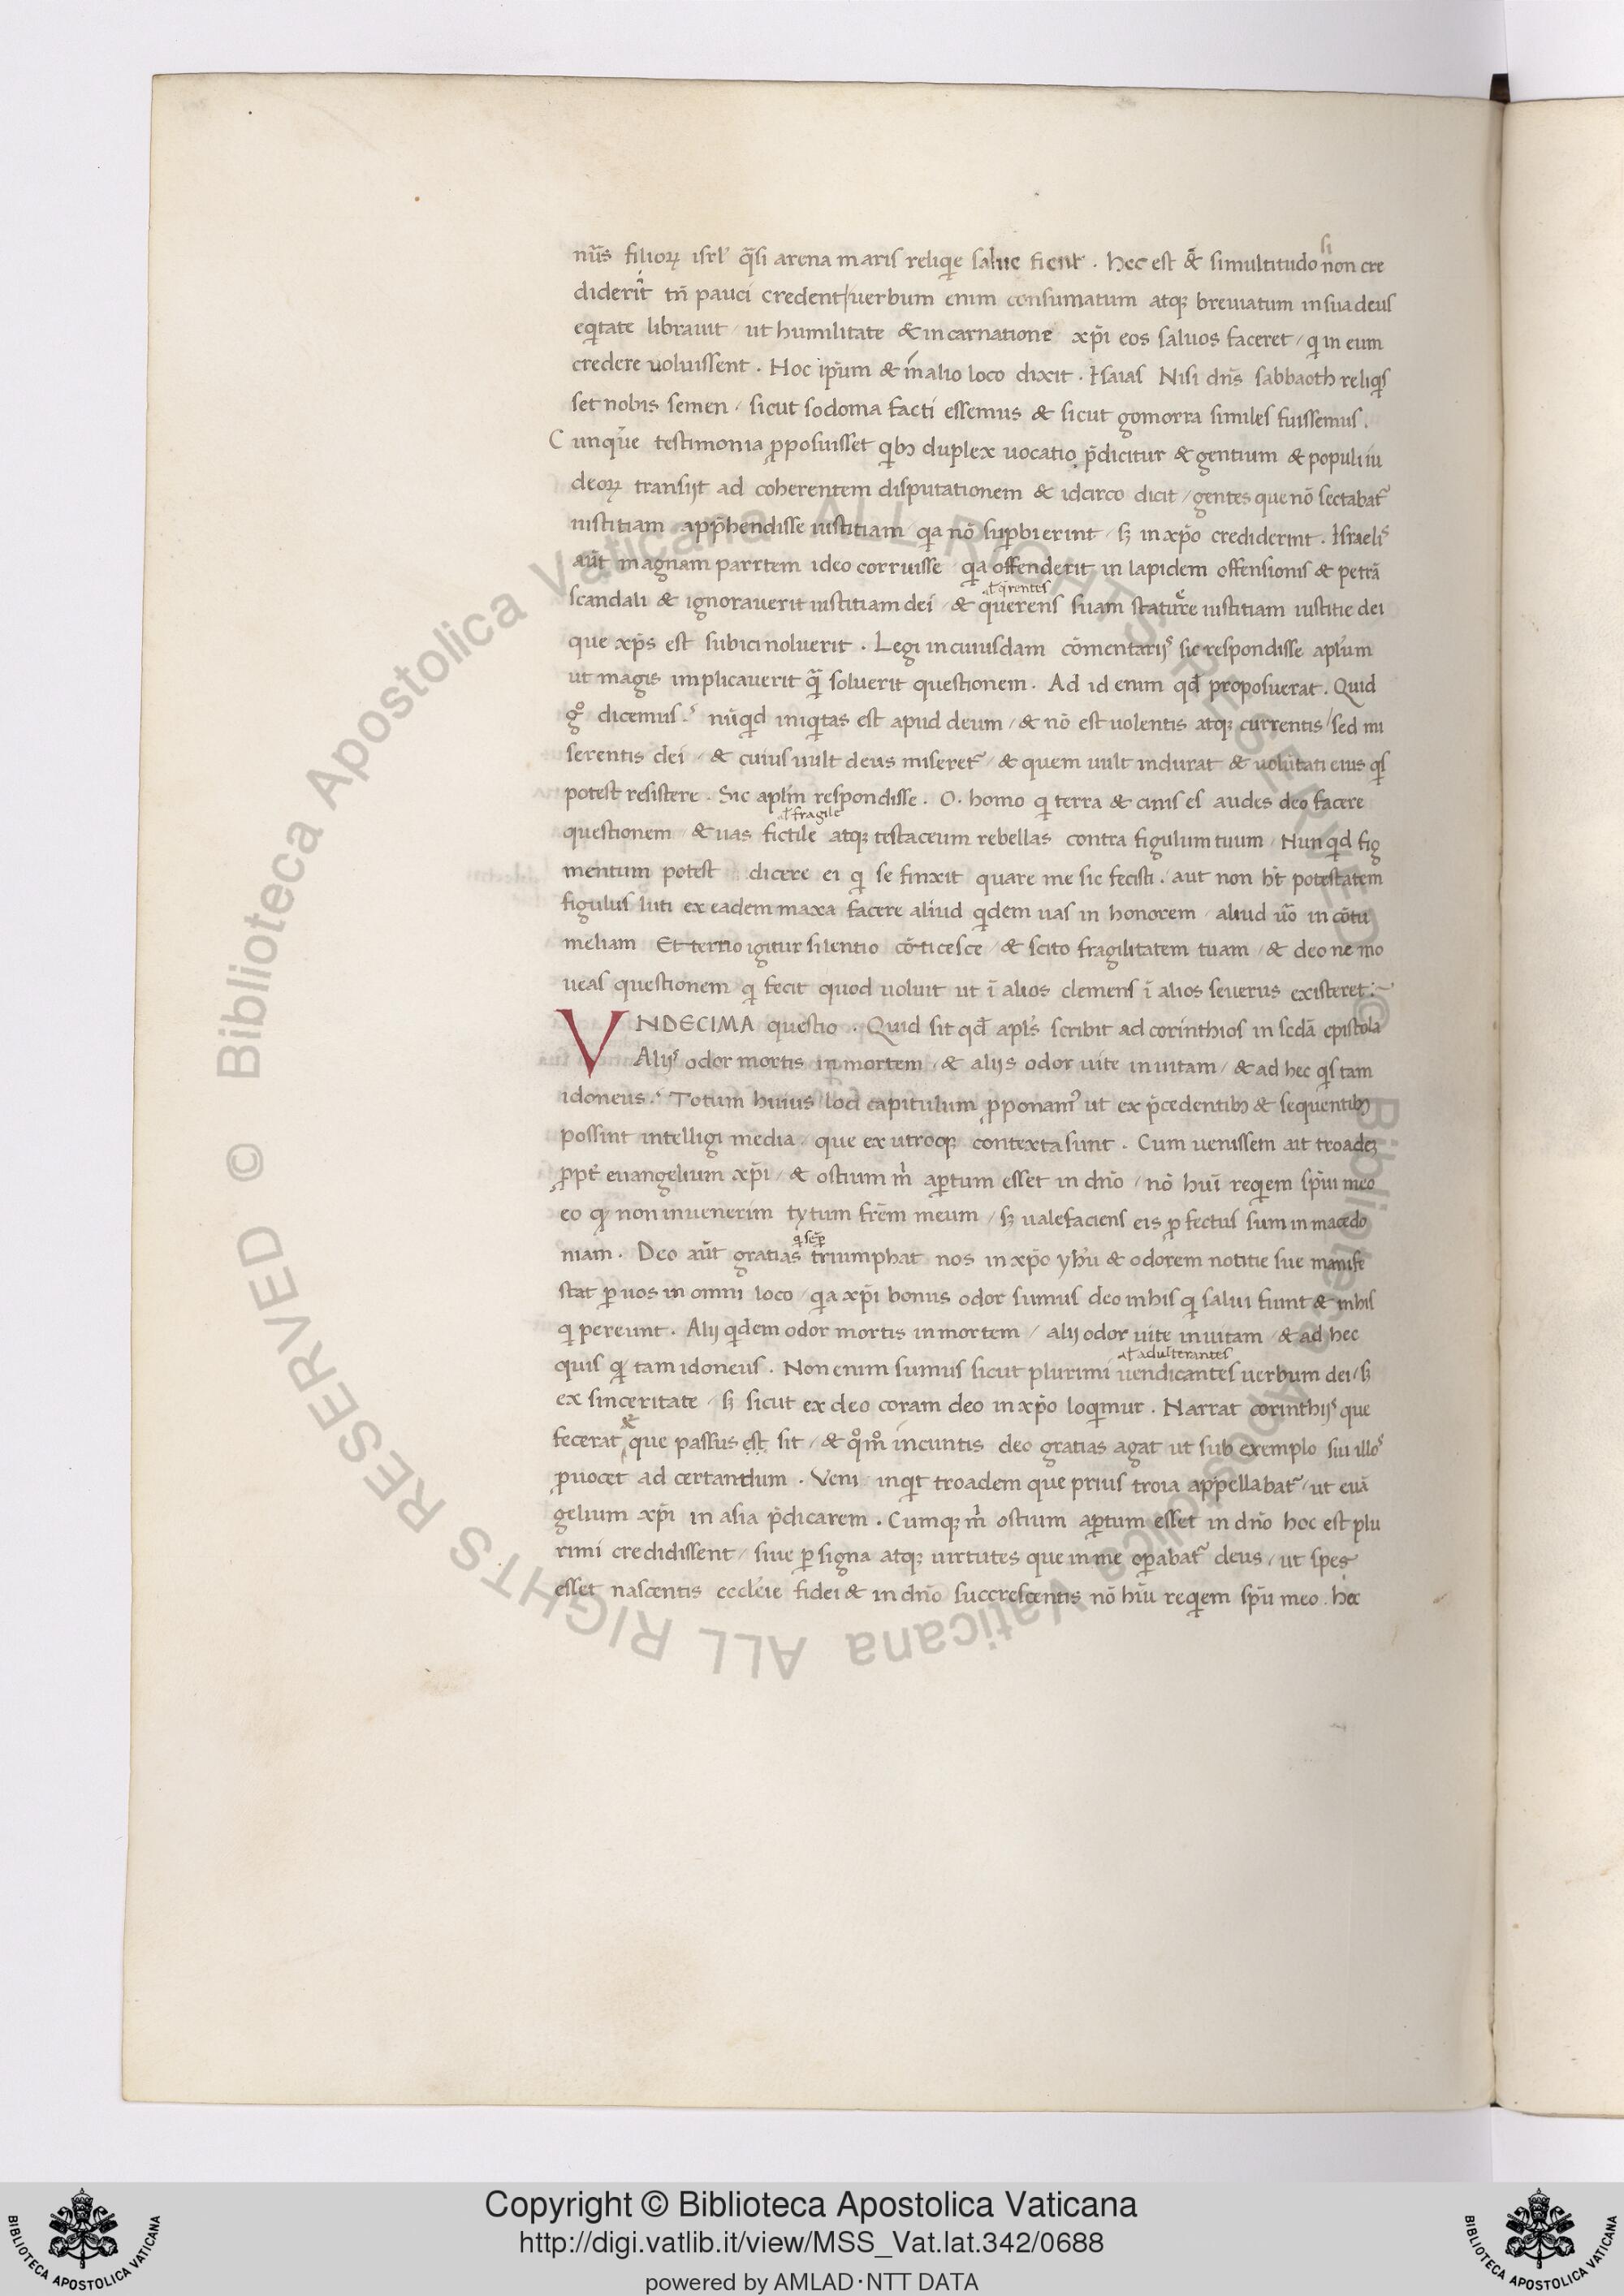 nũs filioꝝ isrl' q̃si arena maris reliq̃e salue fient . hec est & simultitudo non cre
si
diderĩt tñ pauci credent / uerbum enim consumatum atqꝫ breuiatum in sua deus
eqͥtate librauit / ut humilitate & incarnatione xp̃i eos saluos faceret / qͥ in eum
credere uoluissent . Hoc ip̃um & in alio loco dixit . Hsaias Nisi dñs sabbaoth reliqͥs
set nobis semen / sicut sodoma facti essemus & sicut gomorra similes fuissemus .
Cunqũe testimonia ꝓposuisset qͥbꝫ duplex uocatio p̃dicitur & gentium & populi iu
deoꝝ transijt ad coherentem disputationem & idcirco dicit / gentes que nõ sectabat̃
iustitiam app̃hendisse iustitiam qͥa nõ suꝑbierint / sꝫ in xp̃o crediderint . Hsraelis
aũt magnam parrtem ideo corruisse qͥa offenderit in lapidem offensionis & petrã
al' q̃rentes
scandali & ignorauerit iustitiam dei / & querens suam statuere iustitiam iustitie dei
que xp̃s est subici noluerit . Legi in cuiusdam cõmentarijs sic respondisse apl'um
ut magis implicauerit q̃ soluerit questionem . Ad id enim qđ proposuerat . Quid
gͦ dicemus . nũqͥd iniqͥtas est apud deum / & nõ est uolentis atqꝫ currentis / sed mi
serentis dei / & cuius uult deus miseret̃ / & quem uult indurat & uolũtati eius qͥs
potest resistere . Sic apl'm respondisse . O . homo qͥ terra & cinis es audes deo facere
al' fragile
questionem / & uas fictile atqꝫ testaceum rebellas contra figulum tuum / Nunqͥd fig
mentum potest dicere ei qͥ se finxit quare me sic fecisti . aut non ht̃ potestatem
figulus luti ex eadem maxa facere aliud qͥdem uas in honorem / aliud uͦ in cõtu
meliam Et tertio igitur silentio cõticesce / & scito fragilitatem tuam / & deo ne mo
ueas questionem qͥ fecit quod uoluit ut ĩ alios clemens ĩ alios seuerus existeret :~
VNDECIMA questio . Quid sit qđ apl's scribit ad corinthios in scdã epistola
Alijs odor mortis in mortem / & alijs odor uite in uitam / & ad hec qͥs tam
idoneus . Totum huius loci capitulum ꝓponam̃ ut ex p̃cedentibꝫ & sequentibꝫ
possint intelligi media / que ex utroqꝫ contexta sunt . Cum uenissem ait troadeꝫ
ꝓpt̃ euangelium xp̃i / & ostium mͥ aꝑtum esset in dño / nõ huĩ reqͥem sp̃ui meo
eo qͥ non inuenerim tytum frẽm meum / sꝫ ualefaciens eis ꝓfectus sum in macedo
qͥ sẽꝑ
niam . Deo aũt gratias triumphat nos in xp̃o yhũ & odorem notitie sue manife
stat ꝑ uos in omni loco / qͥa xp̃i bonus odor sumus deo in his qͥ salui fiunt & in his
qͥ pereunt . Alij qͥdem odor mortis in mortem / alij odor uite in uitam / & ad hec
al' adulterantes
quis qͥ tam idoneus . Non enim sumus sicut plurimi uendicantes uerbum dei / sꝫ
ex sinceritate / sꝫ sicut ex deo coram deo in xp̃o loqͥmur . Narrat corinthijs que
&
fecerat que passus est sit / & qͦmͦ in cuntis deo gratias agat ut sub exemplo sui illos
ꝓuocet ad certandum . Veni inqͥt troadem que prius troia appellabat̃ / ut euã
gelium xp̃i in asia p̃dicarem . Cumqꝫ mͥ ostium aꝑtum esset in dño hoc est plu
rimi credidissent / siue ꝑ signa atqꝫ uirtutes que in me oꝑabat̃ deus / ut spes
esset nascentis eccl'eie fidei & in dño succrescentis nõ hĩu reqͥem sp̃ũ meo . hec
Copyright © Biblioteca Apostolica Vaticana
http://digi.vatlib.it/view/MSS_Vat.lat.342/0688
powered by AMLAD·NTT DATA
© Biblioteca Apostolica Vaticana ALL RIGHTS RESERVED
© Biblioteca Apostolica Vaticana ALL RIGHTS RESERVED
BIBLIOTECA APOSTOLICA VATICANA
BIBLIOTECA APOSTOLICA VATICANA